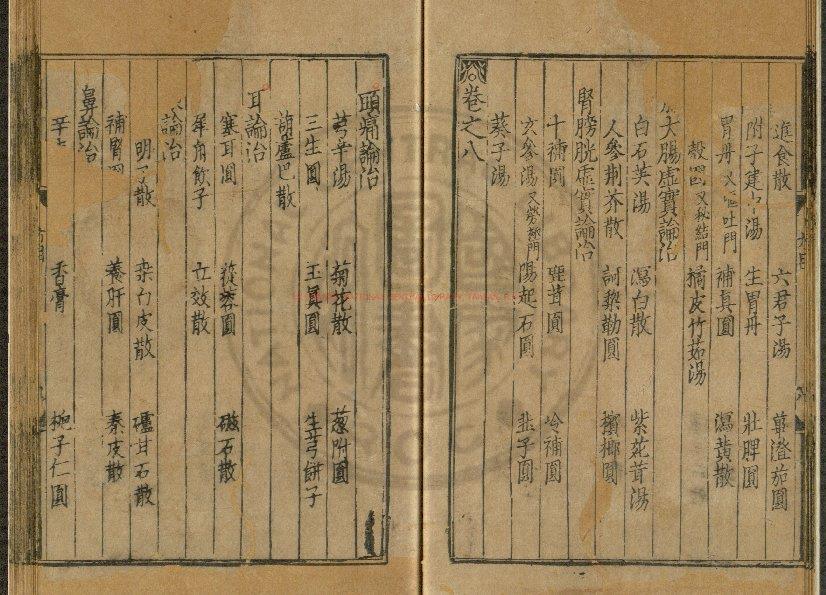 進食散 六君子湯 蓽澄茄圓
附子建中湯 生胃丹 壯脾圓
胃丹又嘔吐門 補真圓 瀉黃散
穀 又秘結門 橘皮竹茹湯
大腸虛實論治
白石英湯 瀉白散 紫菀茸湯
人參荊芥散 訶棃勒圓 檳榔圓
腎膀胱虛實論治
十補圓 鹿茸圓 冷補圓
玄參湯又勞極門 陽起石圓 韭子圓
葵子湯
卷之八
頭痛論治
芎辛湯 菊花散 蔥附圓
三生圓 玉真圓 生芎餅子
葫蘆巴散
耳論治
塞耳圓 蓯蓉圓 磁石散
犀角飲子 亡效散
論治
明 散 柰白皮散 爐甘石散
補腎 養肝圓 秦皮散
鼻論治
辛 香膏 梔子仁圓